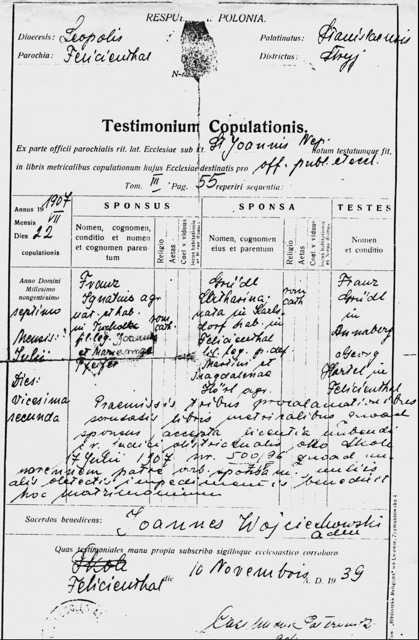 RESPU POLONIA.
Dioecesis: Leopolis
Palatinatus: Stanislaviensis
Parochia: Felicienthal
Districtus: Stryj
Testimonium Copulationis.
Ex parte officii parochialis rit. lat. Ecclesiae sub tit. St Joannis Nep. notum testatumque fit,
in libris metricalibus copulationum hujus Ecclesiae destinatis pro off. publ. et eccl.
Tom. III Pag. 55 reperiri sequentia:
Annus 1907
Mensis VII
Dies 22
copulationis
SPONSUS
SPONSA
TESTES
Nomen, cognomen, conditio et nomen et cognomen parentum
Religio
Aetas
Coel v viduus
Nomen, cognomen ejus et parentum
Religio
Aetas
Coel v vidua
Nomen et conditio
Anno Domini
Millesimo
nongentesimo
septimo
Mensis:
Julii
Dies:
Vicesima
secunda
Franz
Ignatius agr
nat. et hab.
in
p. leg. Joannis
et Mariannae
Pfeifer
rom. cath.
Katharina
nata in Karls-
dorf hab. in
Felicienthal
fil. leg. p. def.
Martini et
Magdalenae
agr.
rom cath
Franz
in
Annaberg
Georg
Hartel in
Felicienthal
Praemissis tribus proclamationibus
libris metricalibus quoad
sponsum accepta licentia nubendi
judici districtualis dtto Skole
17 Julii 1907 nr. 500/96 quoad mi-
norennem patre orb. sponsam nullis
aliis detectis impedimentis benedixit
hoc matrimonium
Sacerdos benedicens: Joannes Wojciechowski
adm
Quas testimoniales manu propia subscribo sigilloque ecclesiastico corroboro
Skole
Felicienthal die 10 Novembris A. D. 1939